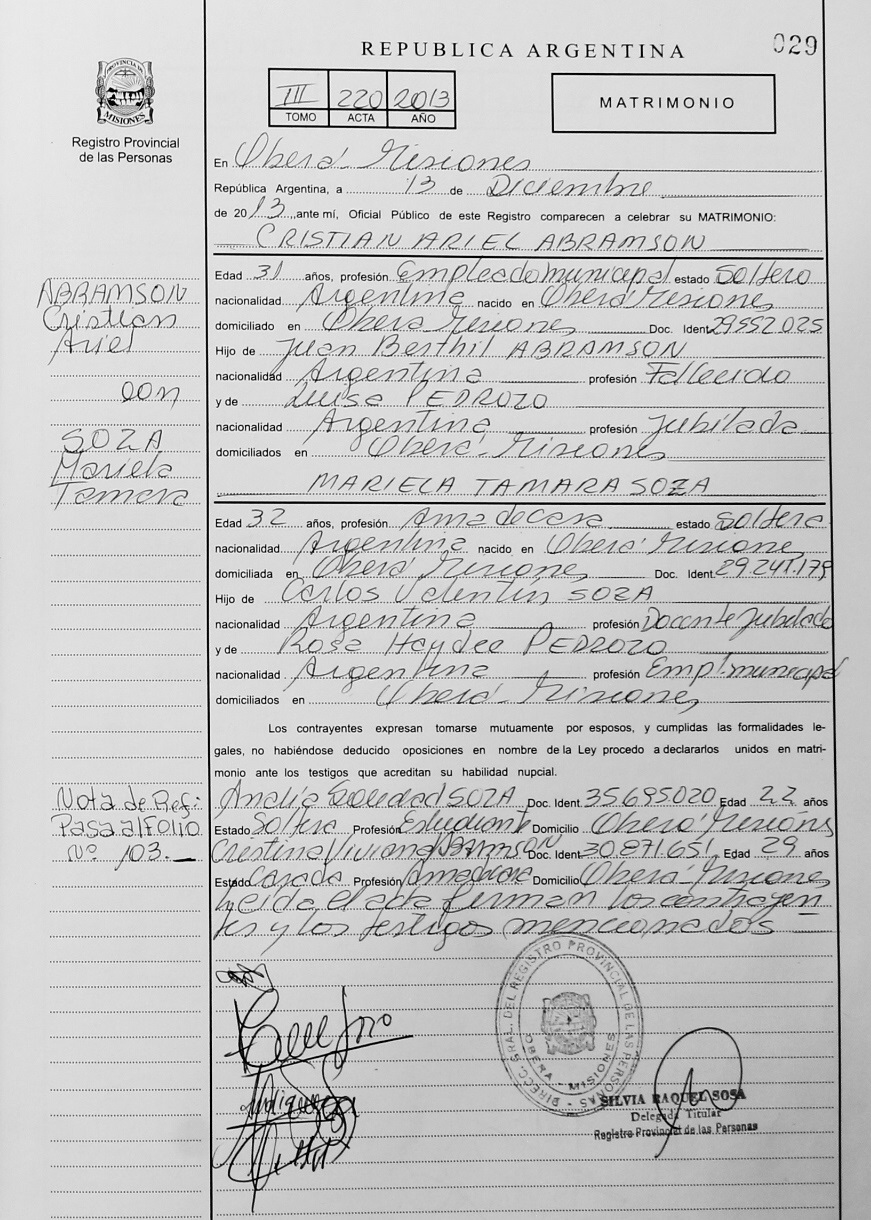 REPUBLICA ARGENTINA
029
PROVINCIA DE MISIONES
Registro Provincial
de las Personas
III 220 2013
TOMO ACTA AÑO
MATRIMONIO
En Oberá - Misiones
República Argentina, a 13 de Diciembre
de 2013, ante mí, Oficial Público de este Registro comparecen a celebrar su MATRIMONIO:
CRISTIAN ARIEL ABRAMSON
Edad 31 años, profesión Empleado municipal estado Soltero
nacionalidad Argentina nacido en Oberá Misiones
domiciliado en Oberá Misiones Doc. Ident. 29552.025
Hijo de Juan Berthil ABRAMSON
nacionalidad Argentina profesión Fallecido
y de Luisa PEDROZO
nacionalidad Argentina profesión Jubilada
domiciliados en Oberá - Misiones
MARIELA TAMARA SOZA
Edad 32 años, profesión Ama de casa estado Soltera
nacionalidad Argentina nacido en Oberá Misiones
domiciliada en Oberá Misiones Doc. Ident. 29.241.179
Hijo de Carlos Valentin SOZA
nacionalidad Argentina profesión Docente Jubilado
y de Rosa Haydee PEDROZO
nacionalidad Argentina profesión Empl. municipal
domiciliados en Oberá - Misiones
Los contrayentes expresan tomarse mutuamente por esposos, y cumplidas las formalidades le-
gales, no habiéndose deducido oposiciones en nombre de la Ley procedo a declararlos unidos en matri-
monio ante los testigos que acreditan su habilidad nupcial.
Analia Soledad SOZA Doc. Ident. 35.695.020 Edad 22 años
Estado Soltera Profesión Estudiante Domicilio Oberá Misiones
Cristina Viviana ABRAMSON Doc. Ident. 30.871.651 Edad 29 años
Estado Casada Profesión Ama de casa Domicilio Oberá - Misiones
Leida el acta firman los contrayen
tes y los testigos mencionados
ABRAMSON
Cristian
Ariel
con
SOZA
Mariela
Tamara
Nota de Ref:
Pasa al Folio
Nº 103.
DIRECC. GRAL. DEL REGISTRO PROVINCIAL DE LAS PERSONAS
OBERA - MISIONES
SILVIA RAQUEL SOSA
Delegada Titular
Registro Provincial de las Personas